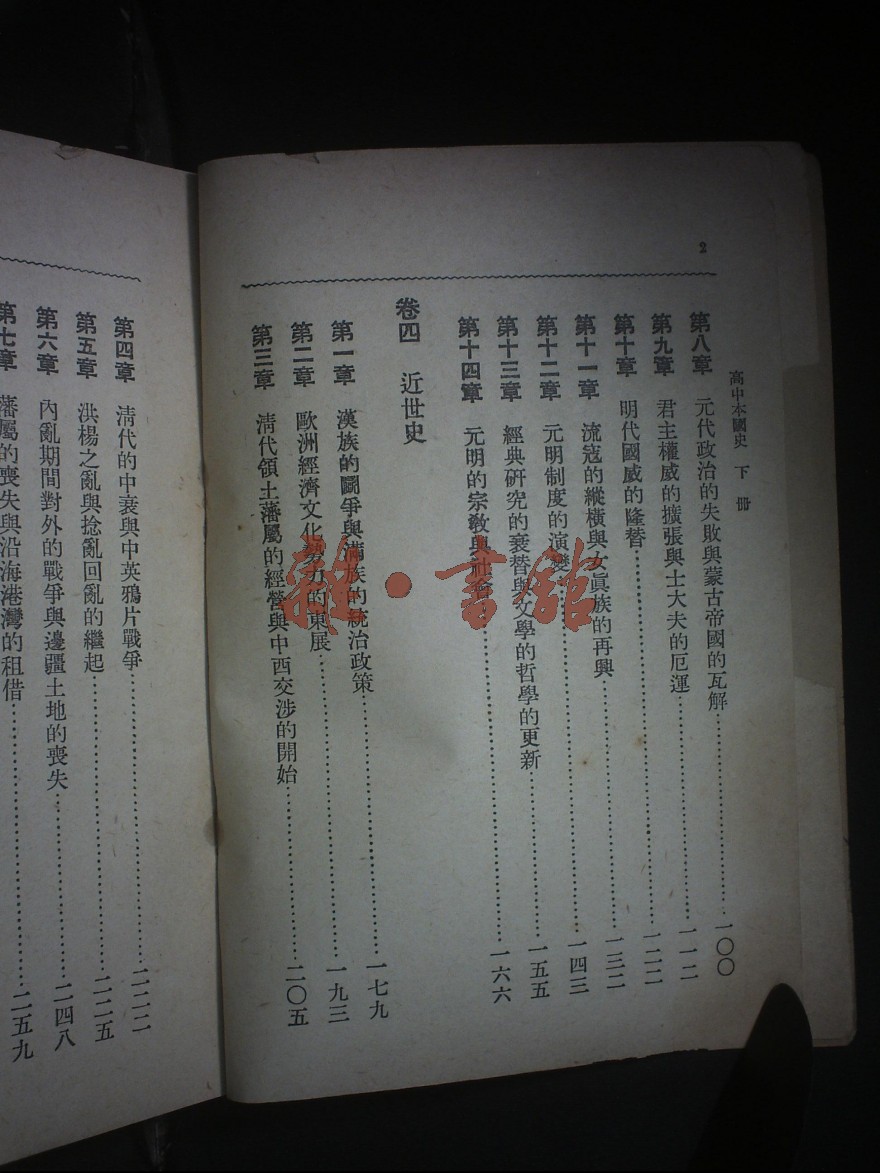 2
高中本國史 下冊
第八章 元代政治的失敗與蒙古帝國的瓦解……一〇〇
第九章 君主權威的擴張與士大夫的厄運……一一二
第十章 明代國威的隆替……一二二
第十一章 流寇的縱橫與女眞族的再興……一三二
第十二章 元明制度的演變……一四三
第十三章 經典研究的衰替與文學的哲學的更新……一五五
第十四章 元明的宗敎與社會……一六六
卷四 近世史
第一章 漢族的鬭爭與滿族的統治政策……一七九
第二章 歐洲經濟文化勢力的東展……一九三
第三章 淸代領土藩屬的經營與中西交涉的開始……二〇五
第四章 淸代的中衰與中英鴉片戰爭……二二二
第五章 洪楊之亂與捻亂回亂的繼起……二二五
第六章 內亂期間對外的戰爭與邊疆土地的喪失……二四八
第七章 藩屬的喪失與沿海港灣的租借……二五九
雜·書館